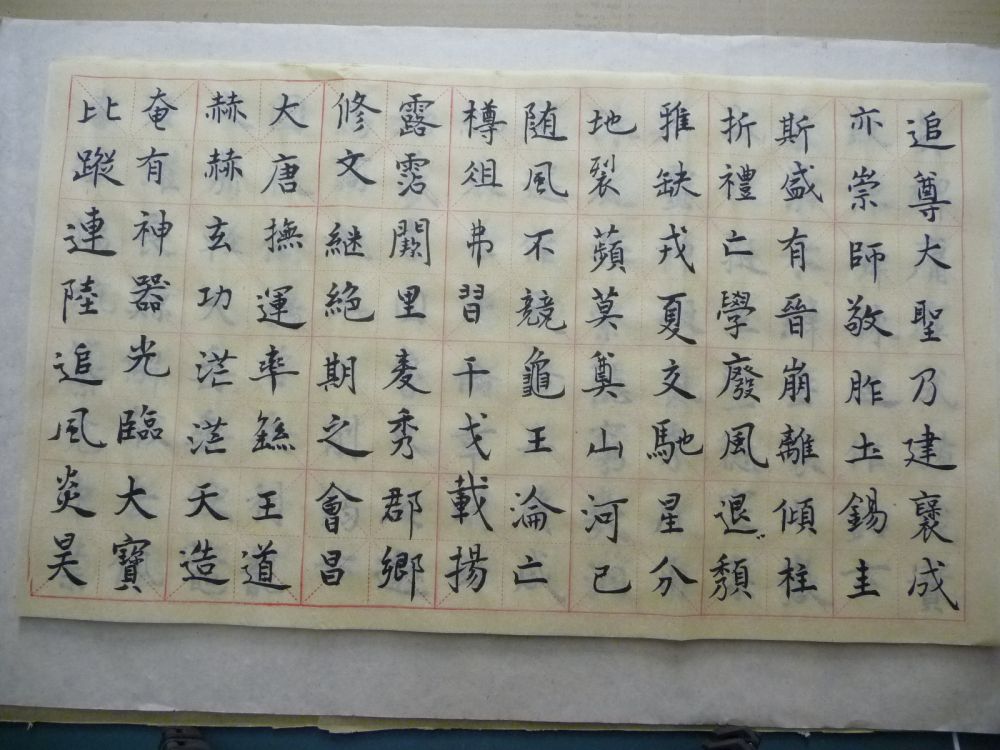 追尊大聖乃建襃成
亦崇師敬胙土錫圭
斯盛有晉崩離傾柱
折禮亡學廢風退頽
雅缺戎夏交馳星分
地裂蘋莫奠山河已
随風不競龜王淪亡
樽俎弗習干戈載揚
露霑闕里麦秀郡鄉
修文継絶期之會昌
大唐撫運率繇王道
赫赫玄功茫茫天造
奄有神器光臨大寶
比蹤連陸追風炎昊